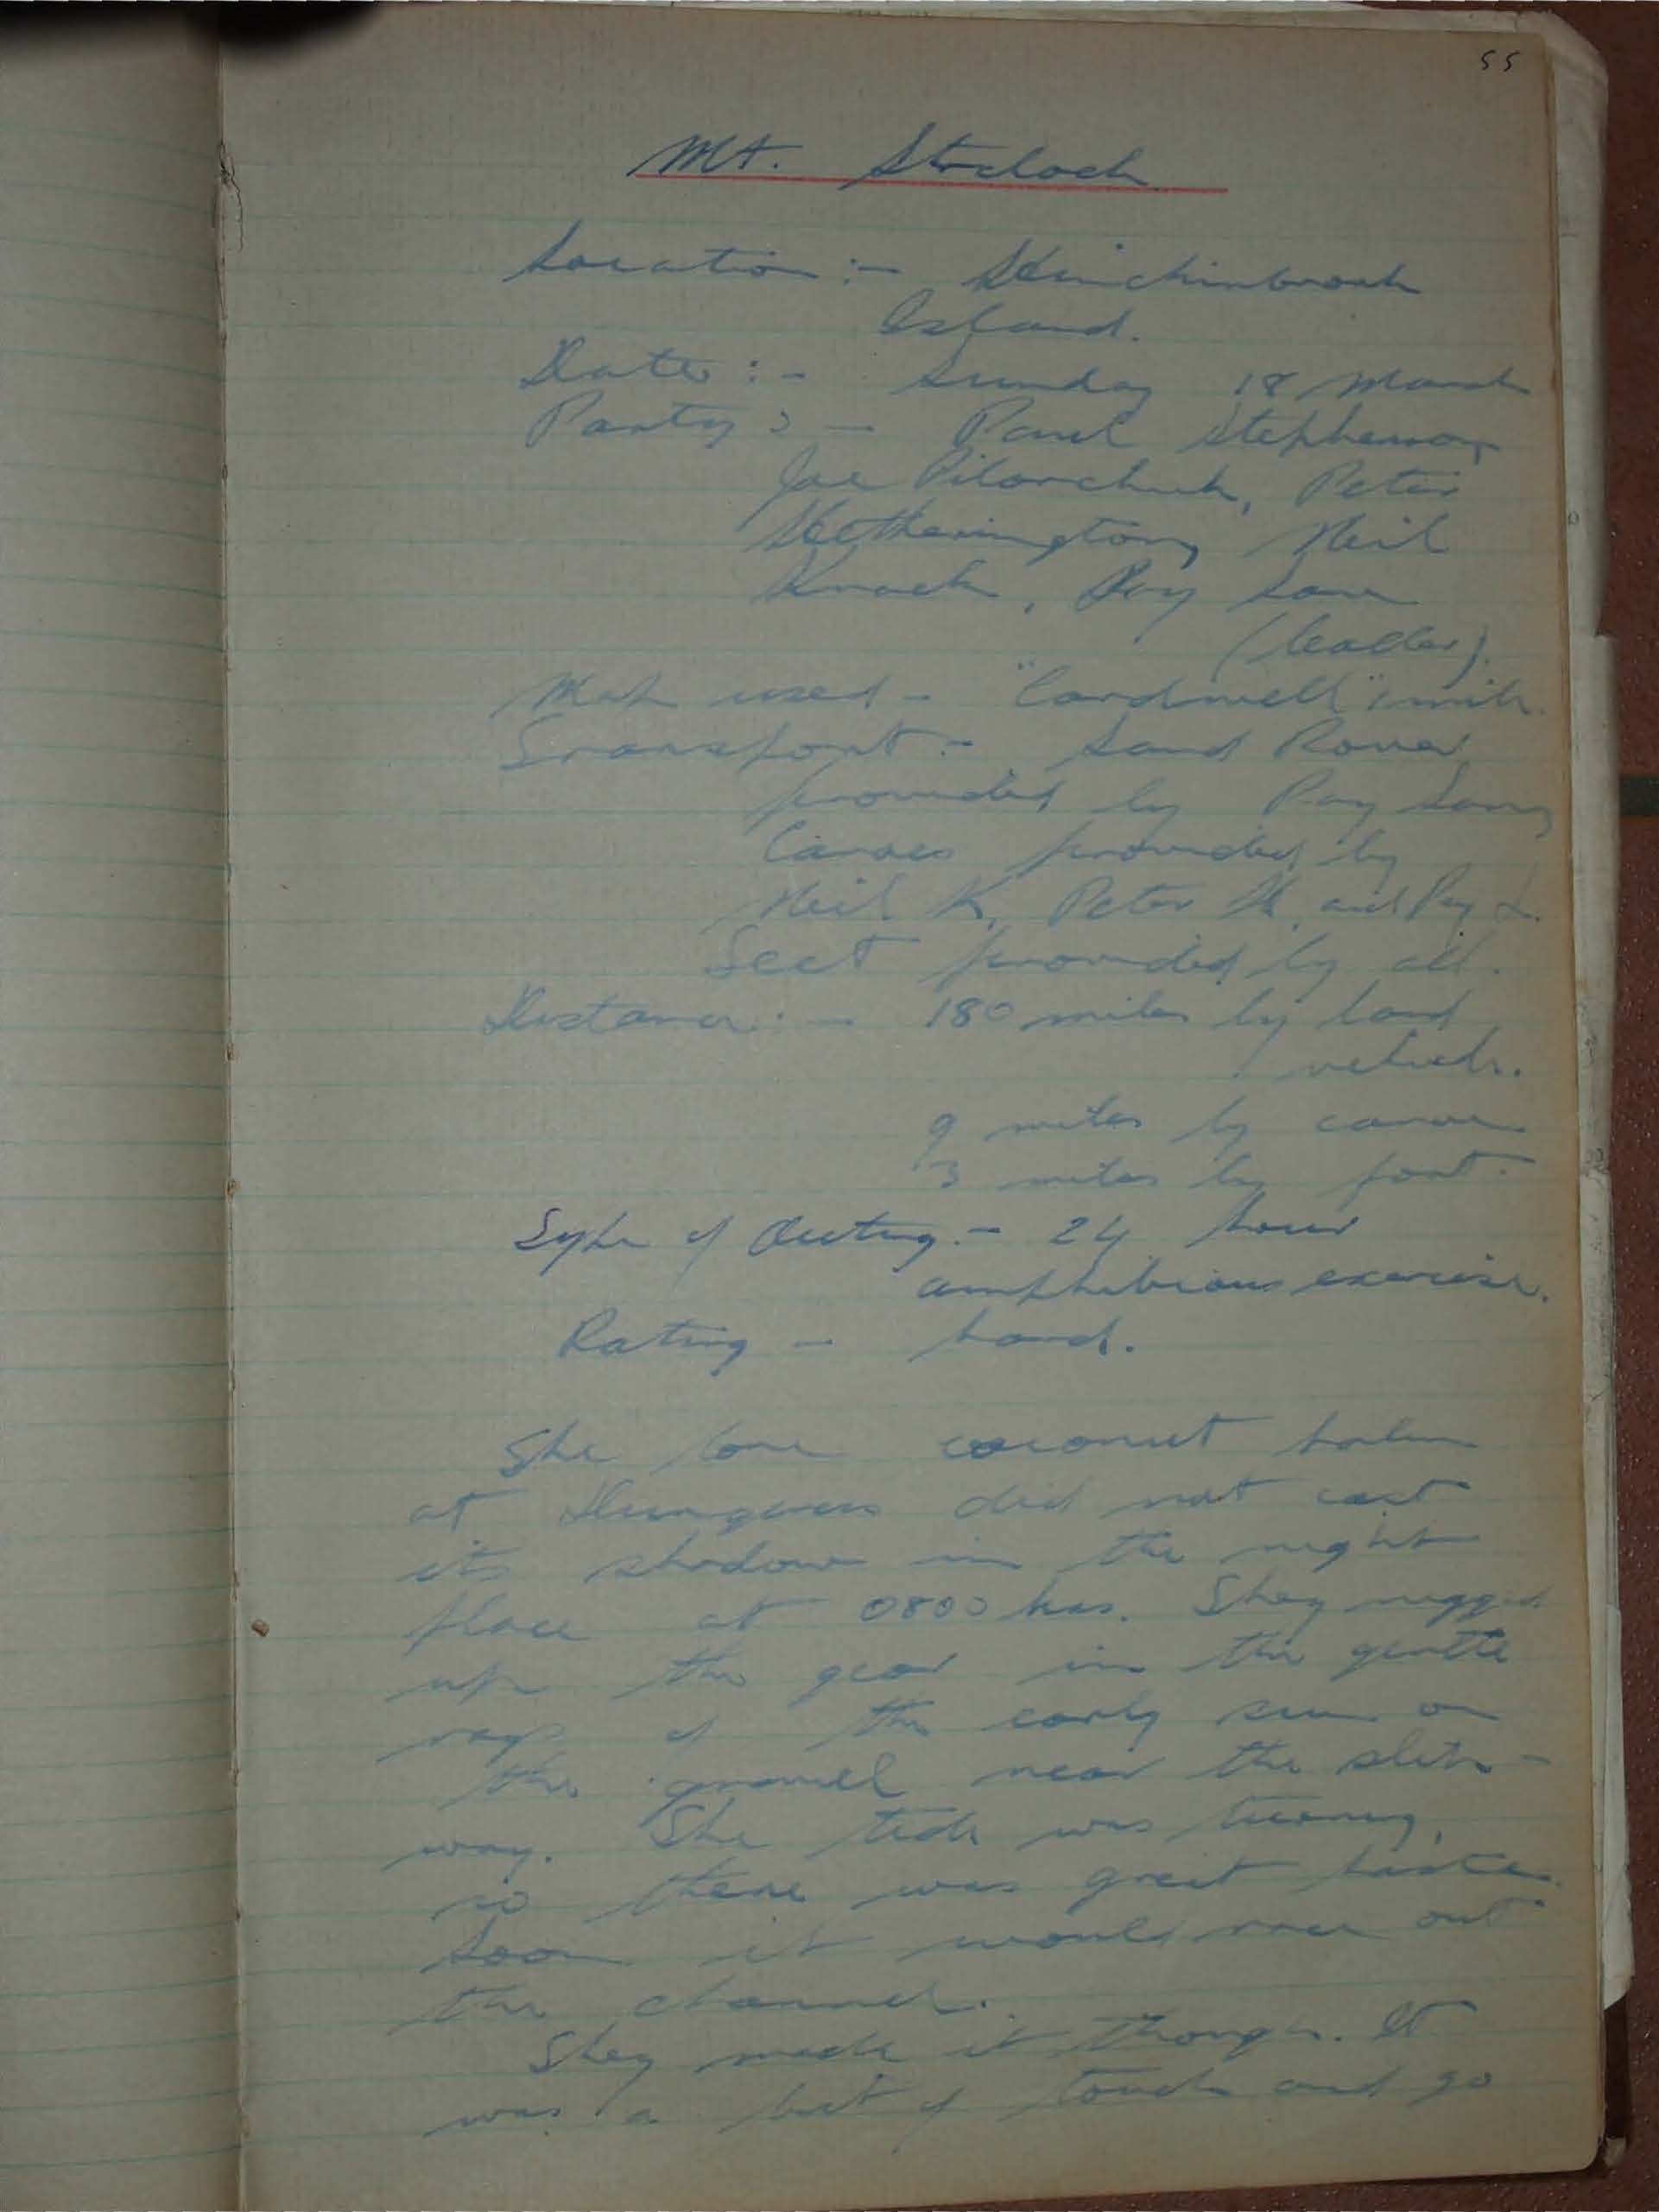 55
Mt. Straloch
Location :- Hinchinbrook
Island.
Date :- Sunday 18 March
Party :- Paul Stephenson,
Joe Pilarchuk, Peter
Hetherington, Neil
Knack, Roy Law
(leader).
Map used - "Cardwell" 1 mile.
Transport :- Land Rover
provided by Roy Law,
Canoes provided by
Neil K, Peter H, and Roy L.
Feet provided by all.
Distance :- 180 miles by land
vehicle.
9 miles by canoe
3 miles by foot.
Type of Outing :- 24 hour
amphibious exercise.
Rating - hard.
The lone coconut palm
at Dungeness did not cast
its shadow in the right
place at 0800 hrs. They rigged
up the gear in the gentle
rays of the early sun on
the gravel near the slip-
way. The tide was turning,
so there was great haste.
Soon it would race out
the channel.
They made it though. It
was a bit of touch and go